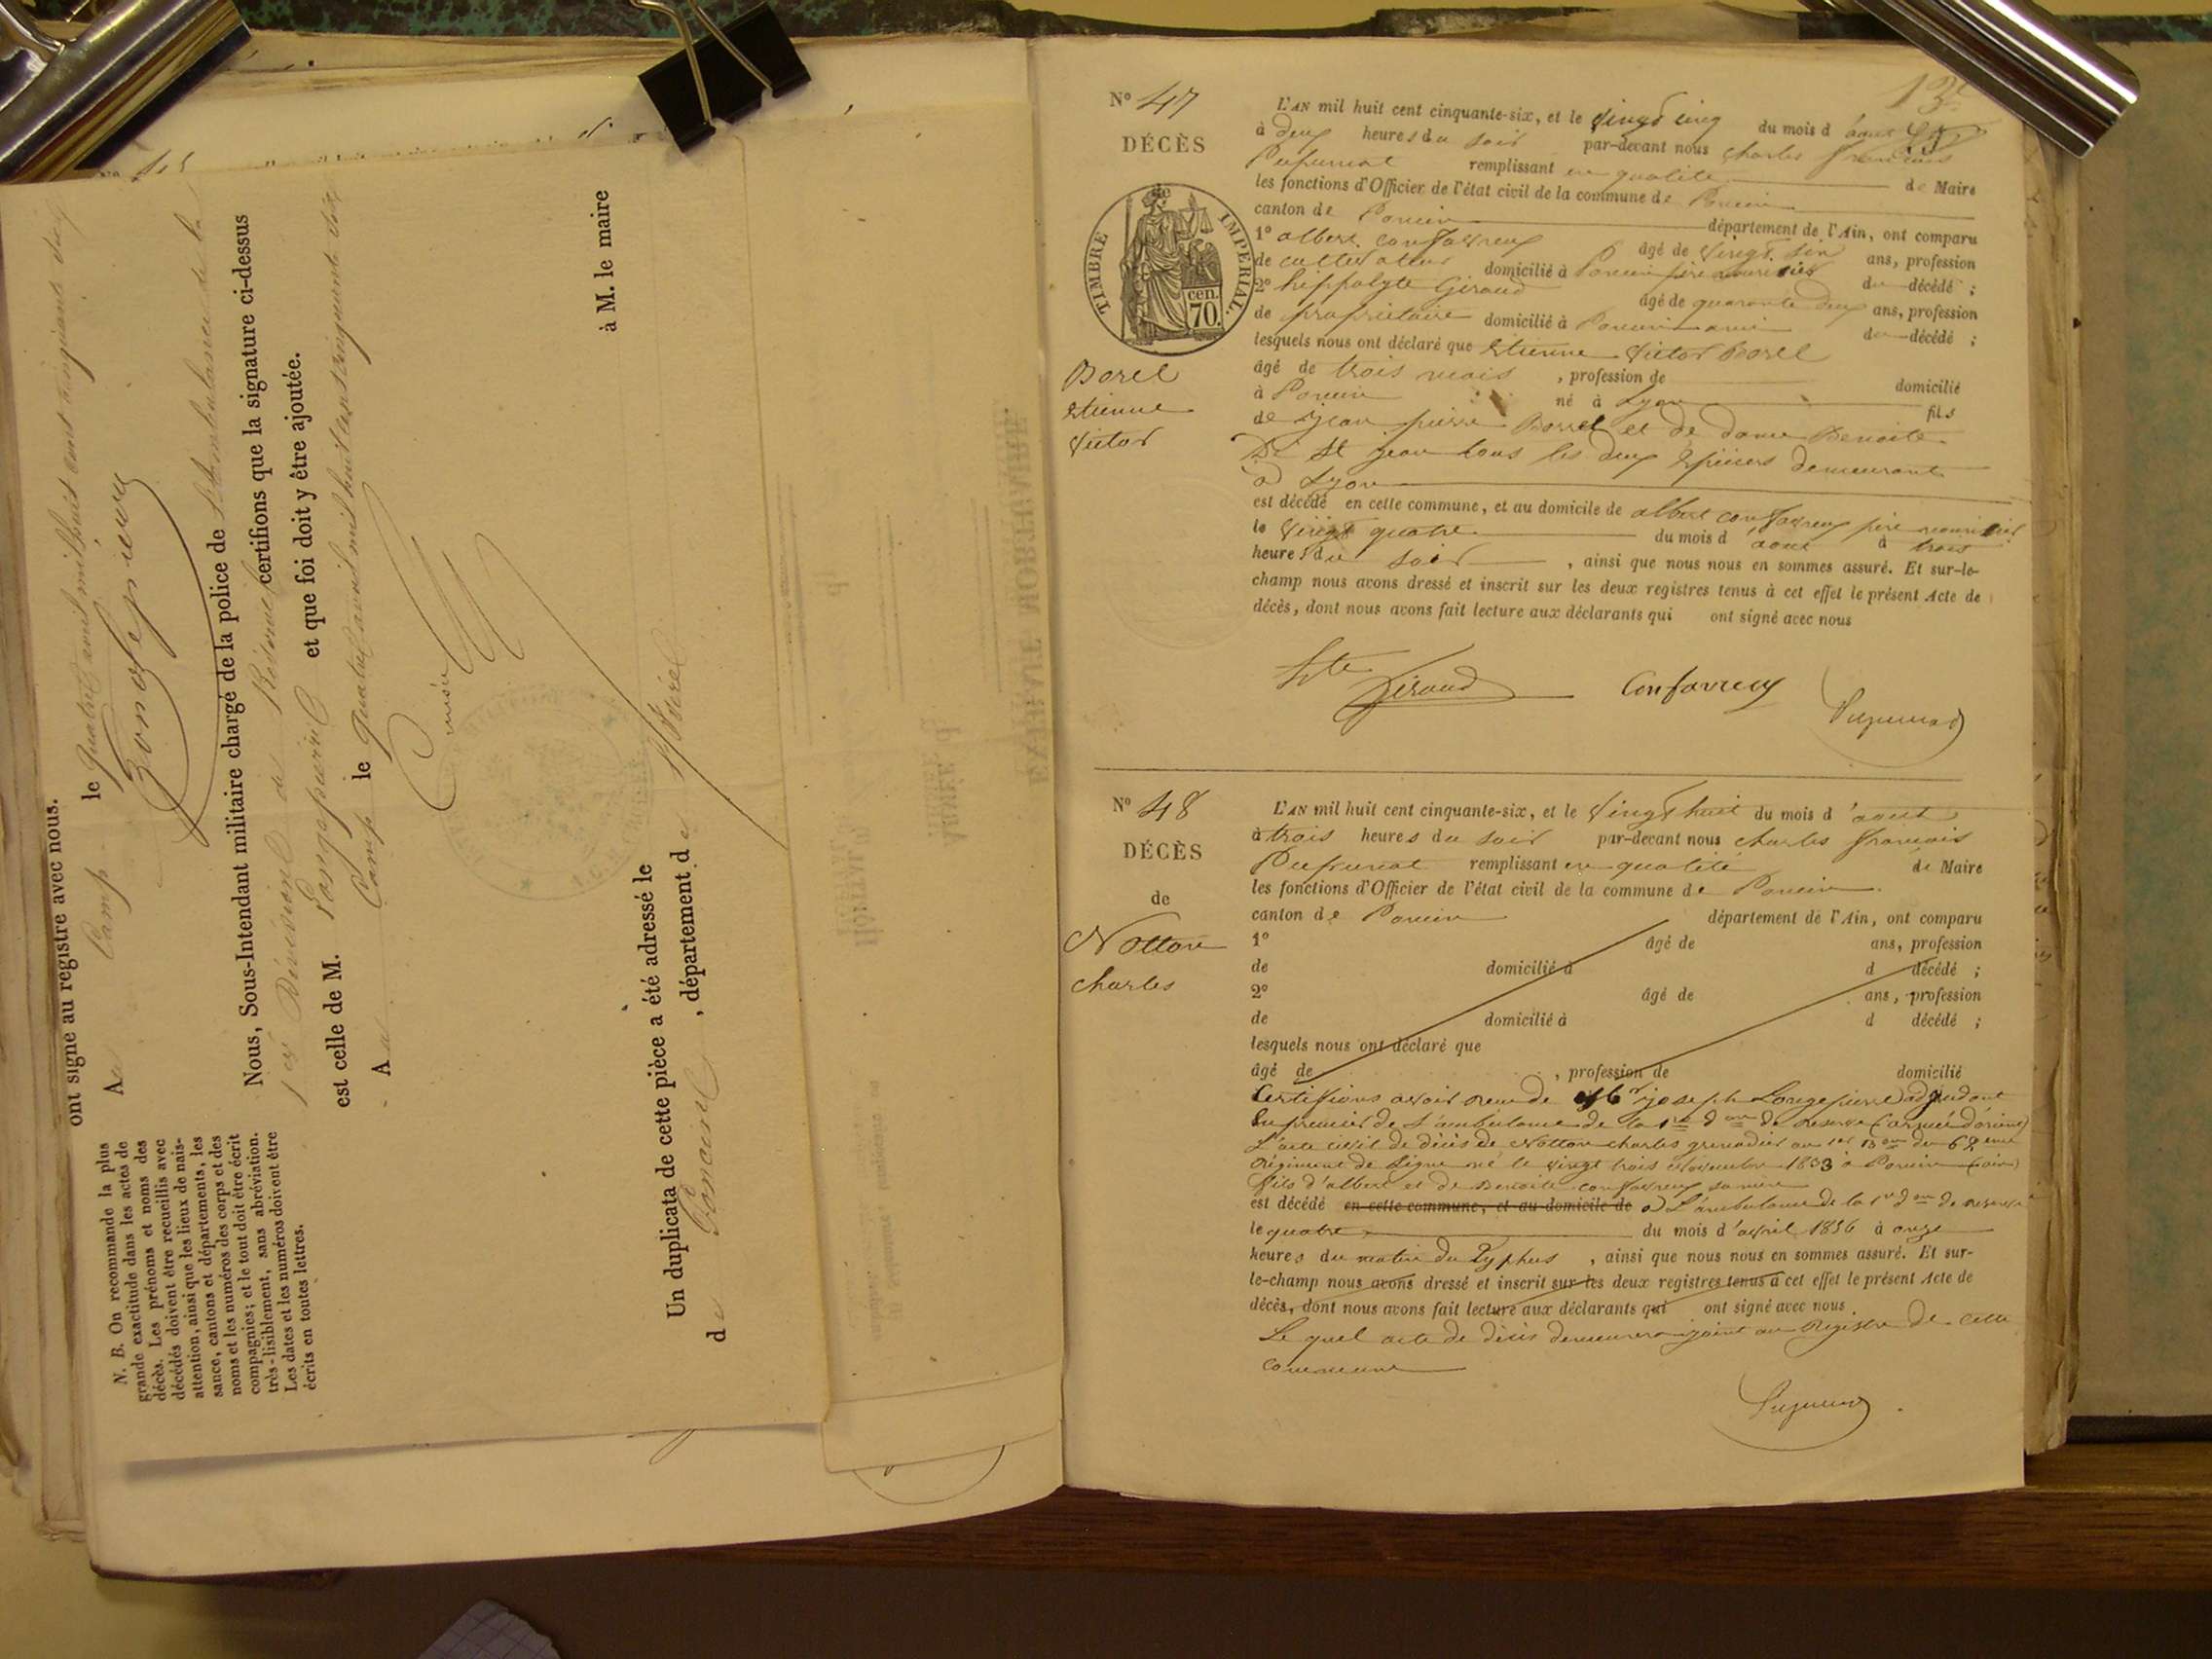 ont signé au registre avec nous.
A Camp le quatre avril mil huit cent cinquante six
Nous, Sous-Intendant militaire chargé de la police de l'Ambulance de la
1re Division de Réserve certifions que la signature ci-dessus
est celle de M. Longepierre et que foi doit y être ajoutée.
A Camp le quatre avril mil huit cent cinquante six
à M. le maire
Un duplicata de cette pièce a été adressé le
d , département d
N. B. On recommande la plus
grande exactitude dans les actes de
décès. Les prénoms et noms des
décédés doivent être recueillis avec
attention, ainsi que les lieux de nais-
sance, cantons et départements, les
noms et les numéros des corps et des
compagnies; et le tout doit être écrit
très-lisiblement, sans abréviation.
Les dates et les numéros doivent être
écrits en toutes lettres.
EXTRAIT MORTUAIRE.
No 47
DÉCÈS
TIMBRE IMPÉRIAL.
70 cen.
Borel
Etienne
Victor
L'AN mil huit cent cinquante-six, et le vingt cinq du mois d'aout
à deux heures du soir par-devant nous Charles François
remplissant en qualité de Maire
les fonctions d'Officier de l'état civil de la commune de Poncin
canton de Poncin département de l'Ain, ont comparu
1° albert confavreux âgé de vingt six ans, profession
de cultivateur domicilié à Poncin père nourricier du décédé ;
2° hippolyte Giraud âgé de quarante deux ans, profession
de propriétaire domicilié à Poncin ami du décédé ;
lesquels nous ont déclaré que Etienne Victor Borel
âgé de trois mois , profession de domicilié
à Poncin né à Lyon fils
de jean pierre Borrel et de dame Benoite
De St jean tous les deux Epiciers demeurant
à Lyon
est décédé en cette commune, et au domicile de albert confavreux père nourricier
le vingt quatre du mois d'aout à trois
heures du soir , ainsi que nous nous en sommes assuré. Et sur-le-
champ nous avons dressé et inscrit sur les deux registres tenus à cet effet le présent Acte de
décès, dont nous avons fait lecture aux déclarants qui ont signé avec nous
hte Giraud Confavreux
No 48
DÉCÈS
de
Notton
Charles
L'AN mil huit cent cinquante-six, et le vingt huit du mois d'aout
à trois heures du soir par-devant nous Charles françois
remplissant en qualité de Maire
les fonctions d'Officier de l'état civil de la commune de Poncin
canton de Poncin département de l'Ain, ont comparu
1° âgé de ans, profession
de domicilié à d décédé ;
2° âgé de ans, profession
de domicilié à d décédé ;
lesquels nous ont déclaré que
âgé de , profession de domicilié
Certifions avoir recu de Mr joseph Longepierre adjudant
en premier de l'ambulance de la 1re don de reserve (armée d'orient)
L'acte civil de décès de Notton charles grenadier au 1er Bon du 62eme
régiment de Ligne né le vingt trois 1833 à Poncin (ain)
fils d'albert et de Benoite confavreux sa mère
est décédé en cette commune, et au domicile de à L'ambulance de la 1re don de reserve
le quatre du mois d'avril 1856 à onze
heures du matin du Typhus , ainsi que nous nous en sommes assuré. Et sur-
le-champ nous avons dressé et inscrit sur les deux registres tenus à cet effet le présent Acte de
décès, dont nous avons fait lecture aux déclarants qui ont signé avec nous.
Le quel acte de décès demeurera joint au Registre de cette
commune